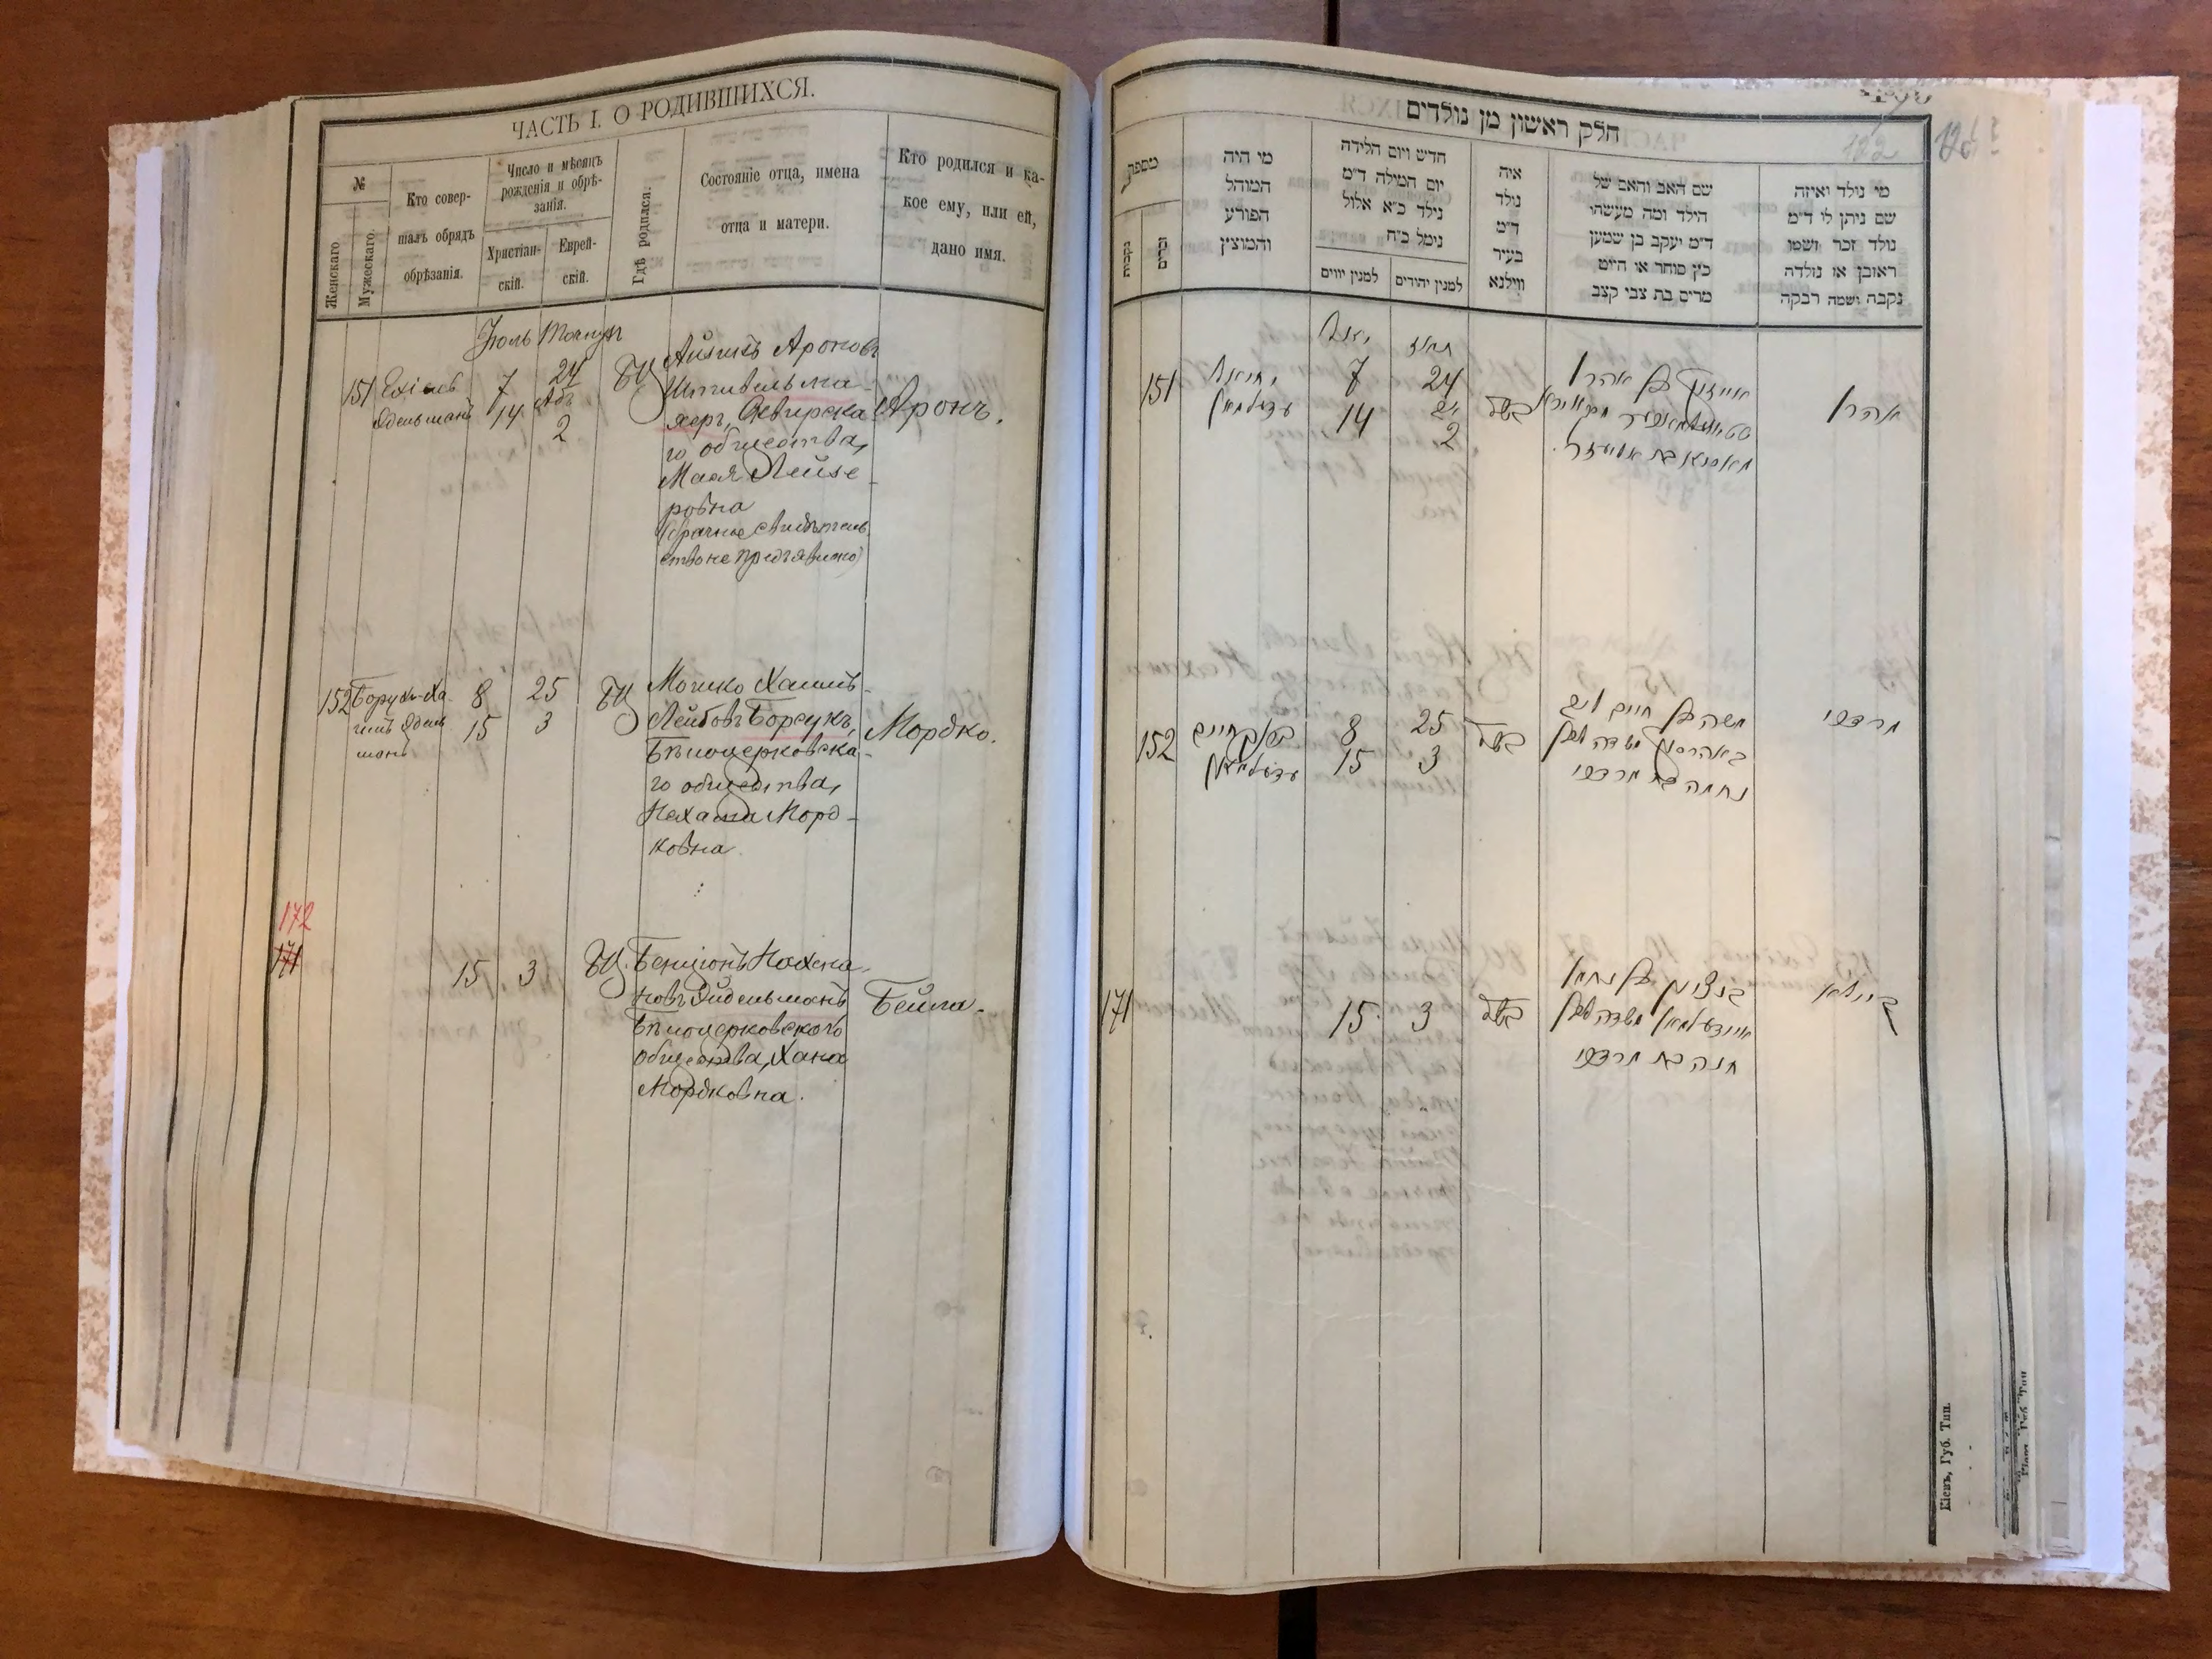 ЧАСТЬ I. О РОДИВШИХСЯ.
№
Женскаго
Мужескаго.
Кто совер-
шалъ обрядъ
обрѣзанія.
Число и мѣсяцъ
рожденія и обрѣ-
занія.
Христіан-
скій.
Еврей-
скій.
Гдѣ родился.
Состояніе отца, имена
отца и матери.
Кто родился и ка-
кое ему, или ей,
дано имя.
Іюль
151
7
24
14
Абъ
2
БЦ
Айзикъ Ароновъ
Штивельма-
херъ, Сквирска-
го общества,
Лейзе-
ровна
(брачное свидѣтель-
ство не предъявлено)
Аронъ.
152
Борухъ-Ха-
имъ Эдель-
манъ
8
25
15
3
БЦ
Мошко Хаимъ-
Лейбовъ Борсукъ,
Бѣлоцерковска-
го общества,
Нехама Морд-
ковна
Мордко.
172
171
15
3
БЦ.
Бенціонъ Нахма-
новъ Эйдельманъ
Бѣлоцерковскаго
общества, Хана
Мордковна.
Бейла.
חלק ראשון מן נולדים
122
מספר
נקבות
זכרים
מי היה
המוהל
הפורע
והמוצץ
חדש ויום הלידה
יום המילה ד"מ
נילד כ"א אלול
נימל כ"ח
למנין יווים
למנין יהודים
איה
נולד
ד"מ
בעיר
ווילנא
שם האב והאם של
הילד ומה מעשהו
ד"מ יעקב בן שמען
כץ סוחר או היוט
מרים בת צבי קצב
מי נולד ואיזה
שם ניתן לו ד"מ
נולד זכר ושמו
ראובן או נולדה
נקבה ושמה רבקה
תמוז
151
עדעלמאן
7
24
14
2
אהרן
152
עדעלמאן
8
25
15
3
משה בן חיים ליב
נחמה בת מרדכי
מרדכי
171
15
3
בנציון בן נחמן
חנה בת מרדכי
ביילא
Кіевъ, Губ. Тип.